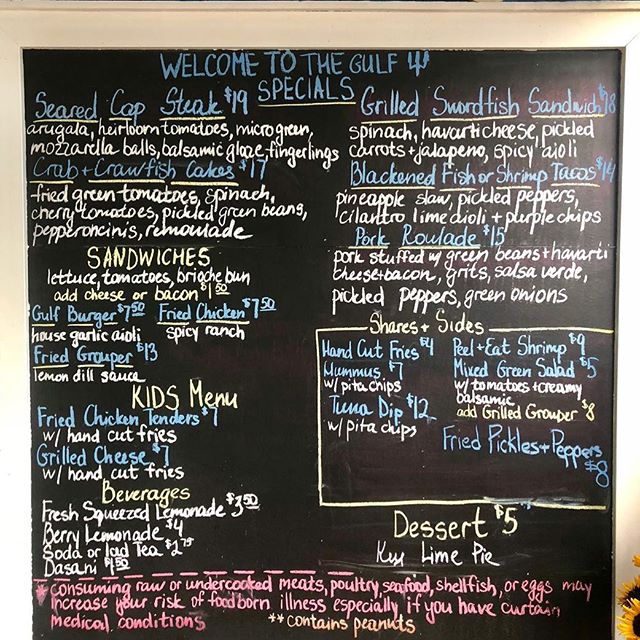 WELCOME TO THE GULF
SPECIALS
Seared Cap Steak $19
arugala, heirloom tomatoes, micro green,
mozzarella balls, balsamic glaze, fingerlings
Crab + Crawfish Cakes $17
fried green tomatoes, spinach,
cherry tomatoes, pickled green beans,
pepperoncinis, remoulade
SANDWICHES
lettuce, tomatoes, brioche bun
add cheese or bacon $1.50
Gulf Burger $7.50 Fried Chicken $7.50
house garlic aioli spicy ranch
Fried Grouper $13
lemon dill sauce
KIDS Menu
Fried Chicken Tenders $7
w/ hand cut fries
Grilled Cheese $7
w/ hand cut fries
Beverages
Fresh Squeezed Lemonade $3.50
Berry Lemonade $4
Soda or Iced Tea $2.75
Dasani $1.50
Grilled Swordfish Sandwich $18
spinach, havarti cheese, pickled
carrots + jalapeno, spicy aioli
Blackened Fish or Shrimp Tacos $14
pineapple slaw, pickled peppers,
cilantro lime aioli + purple chips
Pork Roulade $15
pork stuffed w/ green beans + havarti
cheese + bacon, grits, salsa verde,
pickled peppers, green onions
Shares + Sides
Hand Cut Fries $4
Hummus $7
w/ pita chips
Tuna Dip $12
w/ pita chips
Peel + Eat Shrimp $9
Mixed Green Salad $5
w/ tomatoes + creamy
balsamic
add Grilled Grouper $8
Fried Pickles + Peppers
$8
Dessert $5
Key Lime Pie
* consuming raw or undercooked meats, poultry, seafood, shellfish, or eggs may
increase your risk of foodborn illness especially if you have curtain
medical conditions
** contains peanuts